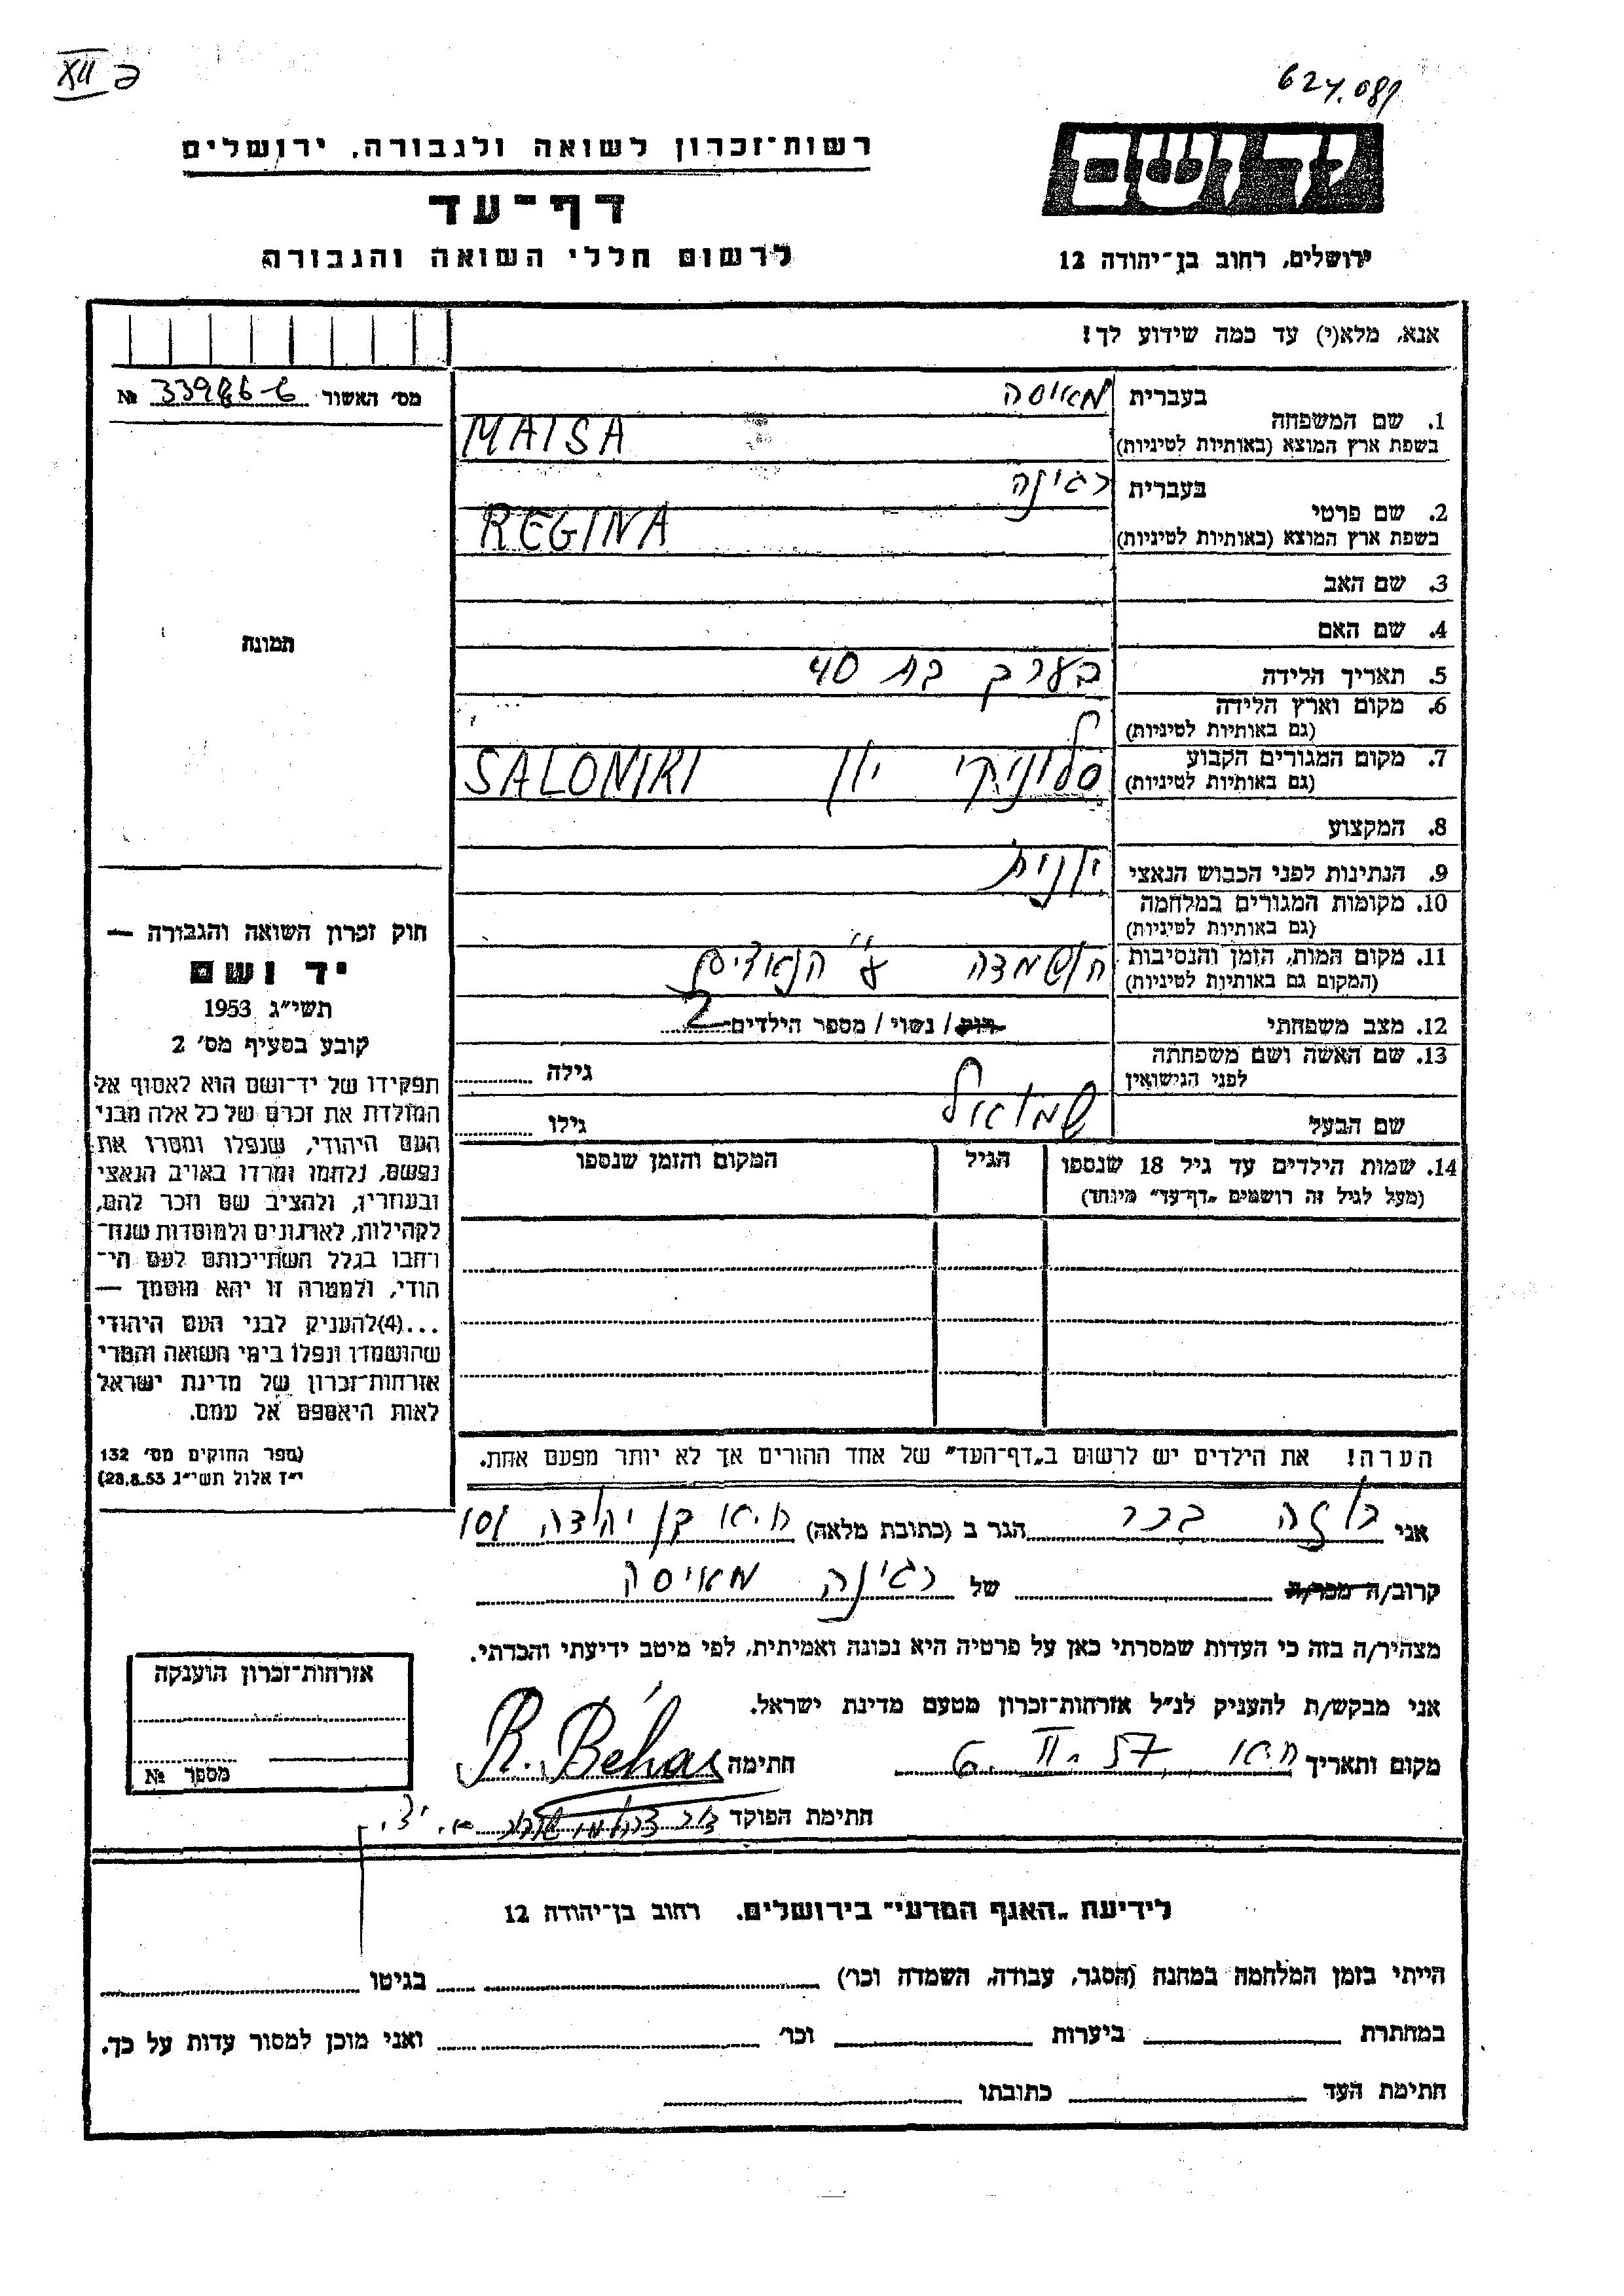 XII
624.081
רשות־זכרון לשואה ולגבורה, ירושלים
דף־עד
לרשום חללי השואה והגבורה
ידושם
ירושלים, רחוב בן־יהודה 12
אנא, מלא(י) עד כמה שידוע לך!
מס׳ האשור №
1. שם המשפחה בעברית מאיסה
בשפת ארץ המוצא (באותיות לטיניות) MAISA
2. שם פרטי בעברית רגינה
בשפת ארץ המוצא (באותיות לטיניות) REGINA
3. שם האב
4. שם האם
5. תאריך הלידה בערך בת 40
6. מקום וארץ הלידה
(גם באותיות לטיניות)
7. מקום המגורים הקבוע סלוניקי יון SALONIKI
(גם באותיות לטיניות)
8. המקצוע
9. הנתינות לפני הכבוש הנאצי יונית
10. מקומות המגורים במלחמה
(גם באותיות לטיניות)
11. מקום המות, הזמן והנסיבות הושמדה ע״י הנאצים
(המקום גם באותיות לטיניות)
12. מצב משפחתי רוק / נשוי / מספר הילדים 2
13. שם האשה ושם משפחתה
לפני הנישואין גילה
שם הבעל שמואל גילו
14. שמות הילדים עד גיל 18 שנספו הגיל המקום והזמן שנספו
(מעל לגיל זה רושמים „דף־עד״ מיוחד)
הערה! את הילדים יש לרשום ב„דף־העד״ של אחד ההורים אך לא יותר מפעם אחת.
תמונה
חוק זכרון השואה והגבורה —
יד ושם
תשי״ג 1953
קובע בסעיף מס׳ 2
תפקידו של יד־ושם הוא לאסוף אל
המולדת את זכרם של כל אלה מבני
העם היהודי, שנפלו ומסרו את
נפשם, נלחמו ומרדו באויב הנאצי
ובעוזריו, ולהציב שם וזכר להם,
לקהילות, לארגונים ולמוסדות שנח־
רבו בגלל השתייכותם לעם הי־
הודי, ולמטרה זו יהא מוסמך —
...(4)להעניק לבני העם היהודי
שהושמדו ונפלו בימי השואה והמרי
אזרחות־זכרון של מדינת ישראל
לאות היאספם אל עמם.
(ספר החוקים מס׳ 132
י״ז אלול תשי״ג 28.8.53)
אני רוזה בכר הגר ב (כתובת מלאה) ת.א בן יהודה 101
קרוב/ה מכר/ה של רגינה מאיסה
מצהיר/ה בזה כי העדות שמסרתי כאן על פרטיה היא נכונה ואמיתית, לפי מיטב ידיעתי והכרתי.
אני מבקש/ת להעניק לנ״ל אזרחות־זכרון מטעם מדינת ישראל.
מקום ותאריך ת.א 6. II. 57 חתימה R. Béhar
חתימת הפוקד
אזרחות־זכרון הוענקה
מספר №
לידיעת „האגף המדעי״ בירושלים, רחוב בן־יהודה 12
הייתי בזמן המלחמה במחנה (הסגר, עבודה, השמדה וכו׳) בגיטו
במחתרת ביערות וכו׳ ואני מוכן למסור עדות על כך.
חתימת העד כתובתו